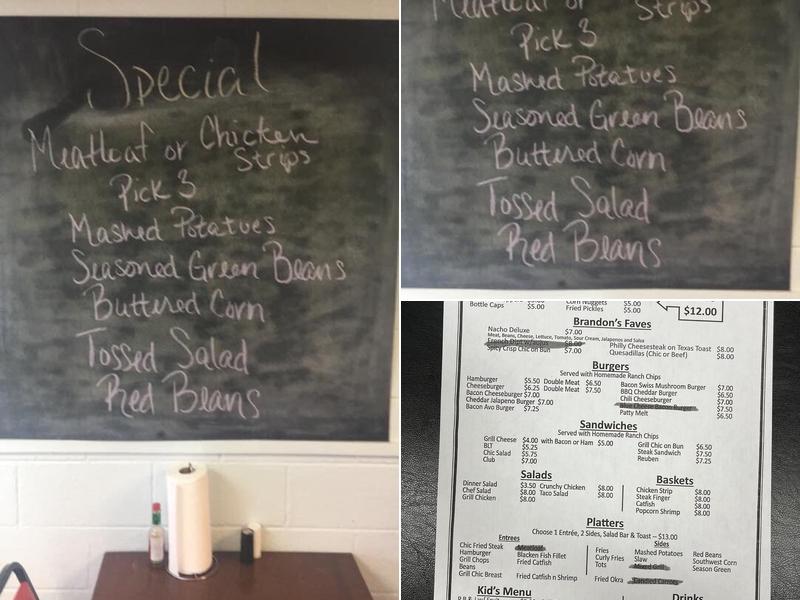 Special
Meatloaf or Chicken
Strips
Pick 3
Mashed Potatoes
Seasoned Green Beans
Buttered Corn
Tossed Salad
Red Beans
Strips
Pick 3
Mashed Potatoes
Seasoned Green Beans
Buttered Corn
Tossed Salad
Red Beans
Bottle Caps $5.00 Corn Nuggets $5.00
Fried Pickles $5.00
$12.00
Brandon's Faves
Nacho Deluxe $7.00
Meat, Beans, Cheese, Lettuce, Tomato, Sour Cream, Jalapenos and Salsa
French Dip $8.00 Philly Cheesesteak on Texas Toast $8.00
Spicy Crisp Chic on Bun $7.00 Quesadillas (Chic or Beef) $8.00
Burgers
Served with Homemade Ranch Chips
Hamburger $5.50 Double Meat $6.50 Bacon Swiss Mushroom Burger $7.00
Cheeseburger $6.25 Double Meat $7.50 BBQ Cheddar Burger $6.50
Bacon Cheeseburger $7.00 Chili Cheeseburger $7.00
Cheddar Jalapeno Burger $7.00 Blue Cheese Bacon Burger $7.50
Bacon Avo Burger $7.25 Patty Melt $6.50
Sandwiches
Served with Homemade Ranch Chips
Grill Cheese $4.00 with Bacon or Ham $5.00 Grill Chic on Bun $6.50
BLT $5.25 Steak Sandwich $7.50
Chic Salad $5.75 Reuben $7.25
Club $7.00
Salads
Dinner Salad $3.50 Crunchy Chicken $8.00
Chef Salad $8.00 Taco Salad $8.00
Grill Chicken $8.00
Baskets
Chicken Strip $8.00
Steak Finger $8.00
Catfish $8.00
Popcorn Shrimp $8.00
Platters
Choose 1 Entrée, 2 Sides, Salad Bar & Toast -- $13.00
Entrees
Chic Fried Steak Meatloaf
Hamburger Blacken Fish Fillet
Grill Chops Fried Catfish
Beans
Grill Chic Breast Fried Catfish n Shrimp
Sides
Fries Mashed Potatoes Red Beans
Curly Fries Slaw Southwest Corn
Tots Mixed Grill Season Green
Fried Okra Candied Carrots
Kid's Menu
Drinks